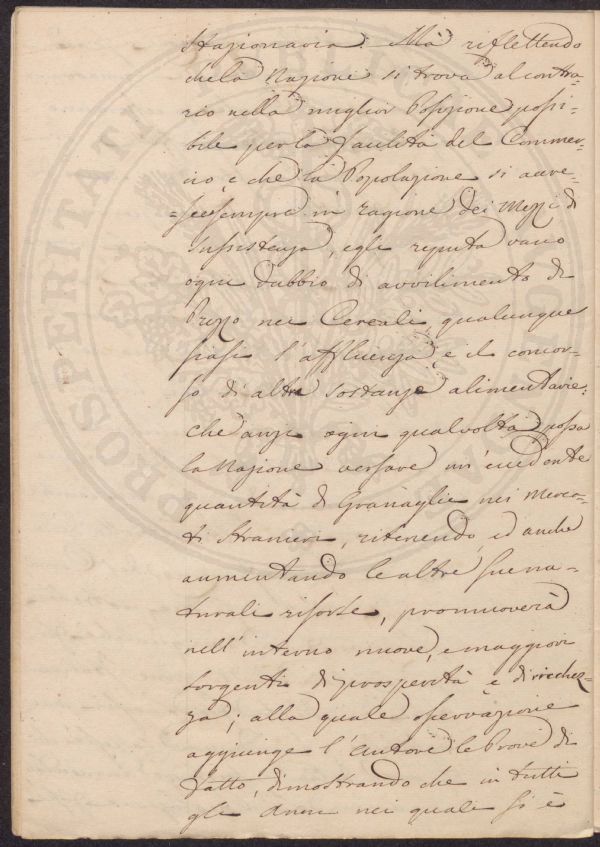 Stazionaria. Mà riflettendo
che la Nazione si trova al contra-
rio nella miglior Posizione possi-
bile per la facilità del Commer-
cio e che la Popolazione si accre-
=sce sempre in ragione dei Mezzi di
sussistenza, egli reputa vano
ogni dubbio di avvilimento di
Prezzo nei Cereali, qualunque
siasi l'affluenza e il concor-
so di altre sostanze alimentarie:
che anzi ogni qualvolta possa
la Nazione versare un'eccedente
quantità di Granaglie nei Merca-
ti Stranieri, ritenendo, ed anche
aumentando le altre sue na-
turali risorse, promuoverà
nell'interno nuove, e maggiori
sorgenti di prosperità e di ricchez-
za; alla quale osservazione
aggiunge l'autore le Prove di
fatto, dimostrando che in tutti
gli Anni nei quali si è
PROSPERITATI